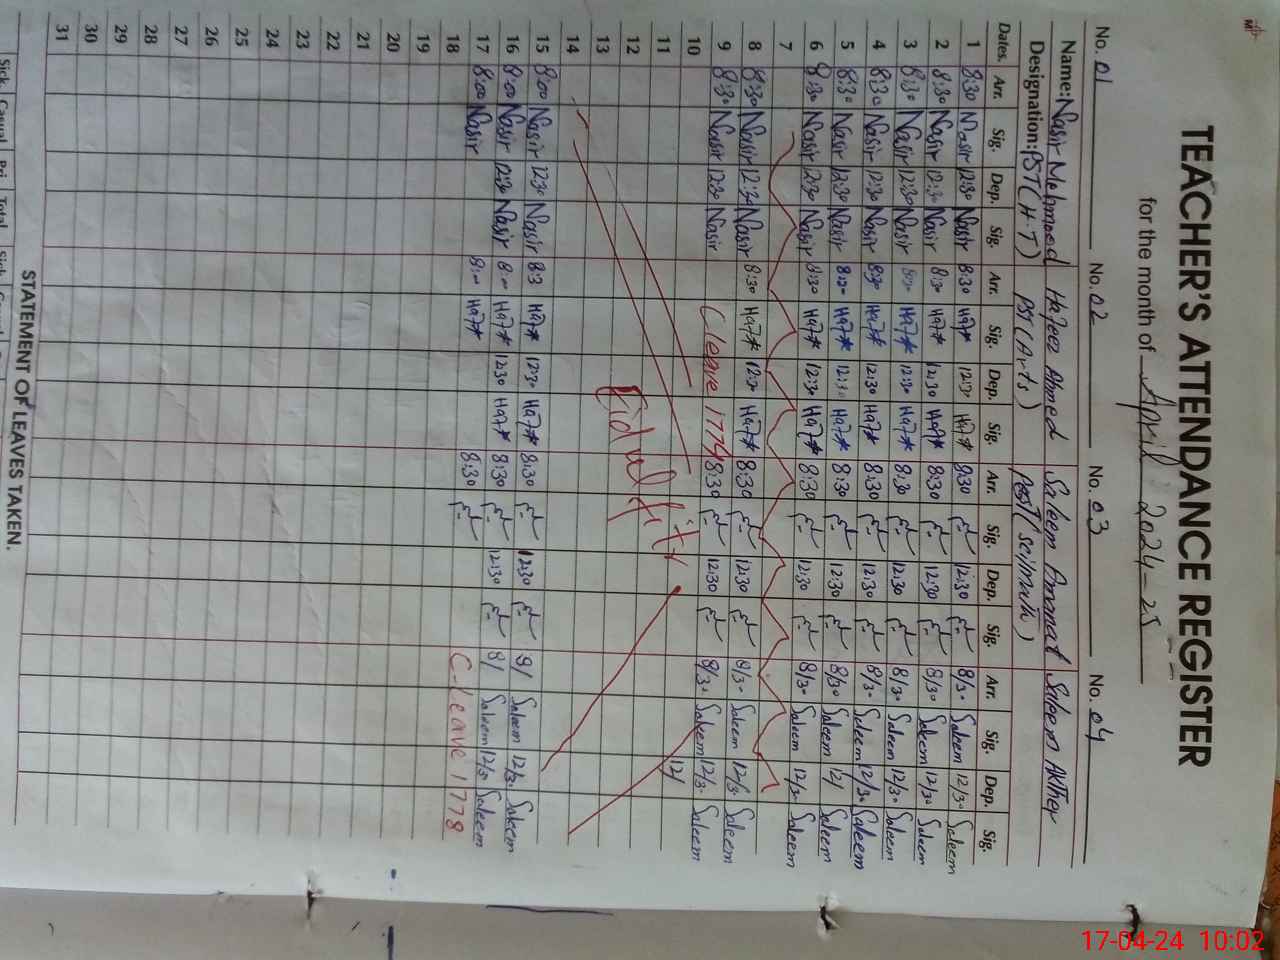 TEACHER'S ATTENDANCE REGISTER
for the month of April 2024-25
No. 01 No. 02 No. 03 No. 04
Name: Nasir Mehmood Hafeez Ahmed Saleem Ammat Saleem Akhter
Designation: PST (H.T) PST (Arts) PST (sci/math)
Dates. Arr. Sig. Dep. Sig. Arr. Sig. Dep. Sig. Arr. Sig. Dep. Sig. Arr. Sig. Dep. Sig.
1 8:30 Nasir 12:30 Nasir 8:30 Haf 12:30 Haf 8:30 12:30 8/30 Saleem 12/30 Saleem
2 8:30 Nasir 12:30 Nasir 8:30 Haf 12:30 Haf 8:30 12:30 8/30 Saleem 12/30 Saleem
3 8:30 Nasir 12:30 Nasir 8:30 Haf 12:30 Haf 8:30 12:30 8/30 Saleem 12/30 Saleem
4 8:30 Nasir 12:30 Nasir 8:30 Haf 12:30 Haf 8:30 12:30 8/30 Saleem 12/30 Saleem
5 8:30 Nasir 12:30 Nasir 8:30 Haf 12:30 Haf 8:30 12:30 8/30 Saleem 12/ Saleem
6 8:30 Nasir 12:30 Nasir 8:30 Haf 12:30 Haf 8:30 12:30 8/30 Saleem 12/30 Saleem
7
8 8:30 Nasir 12:30 Nasir 8:30 Haf 12:30 Haf 8:30 12:30 8/30 Saleem 12/30 Saleem
9 8:30 Nasir 12:30 Nasir C leave 1774 8:30 12:30 8/30 Saleem 12/30 Saleem
10 12/
11
12 Eidul fitr
13
14
15 8:00 Nasir 12:30 Nasir 8:3 Haf 12:30 Haf 8:30 12:30 8/ Saleem 12/30 Saleem
16 8:00 Nasir 12:30 Nasir 8:00 Haf 12:30 Haf 8:30 12:30 8/ Saleem 12/30 Saleem
17 8:00 Nasir 8:00 Haf 8:30 C-leave 1778
18
19
20
21
22
23
24
25
26
27
28
29
30
31
STATEMENT OF LEAVES TAKEN.
Sick Casual Pri Total Sick
17-04-24 10:02